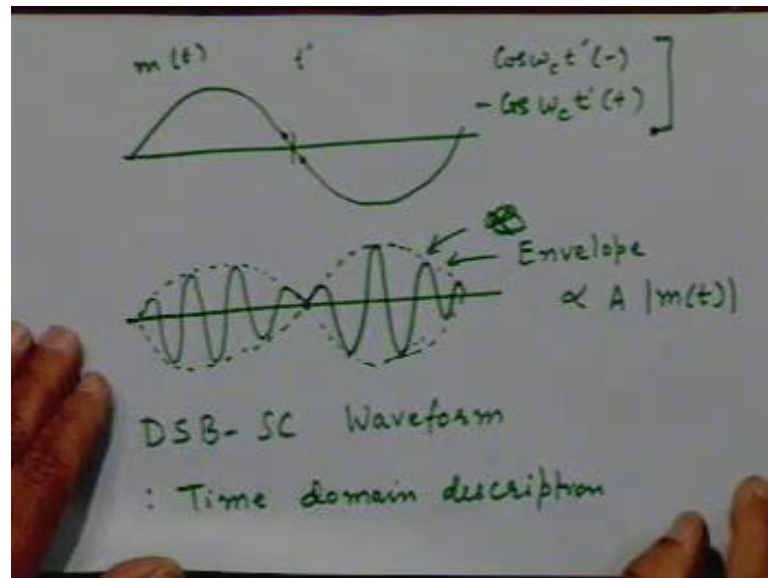 m(t) t' Cos ω_c t' (-)
- Cos ω_c t' (+)
Envelope
∝ A |m(t)|
DSB-SC Waveform
: Time domain description